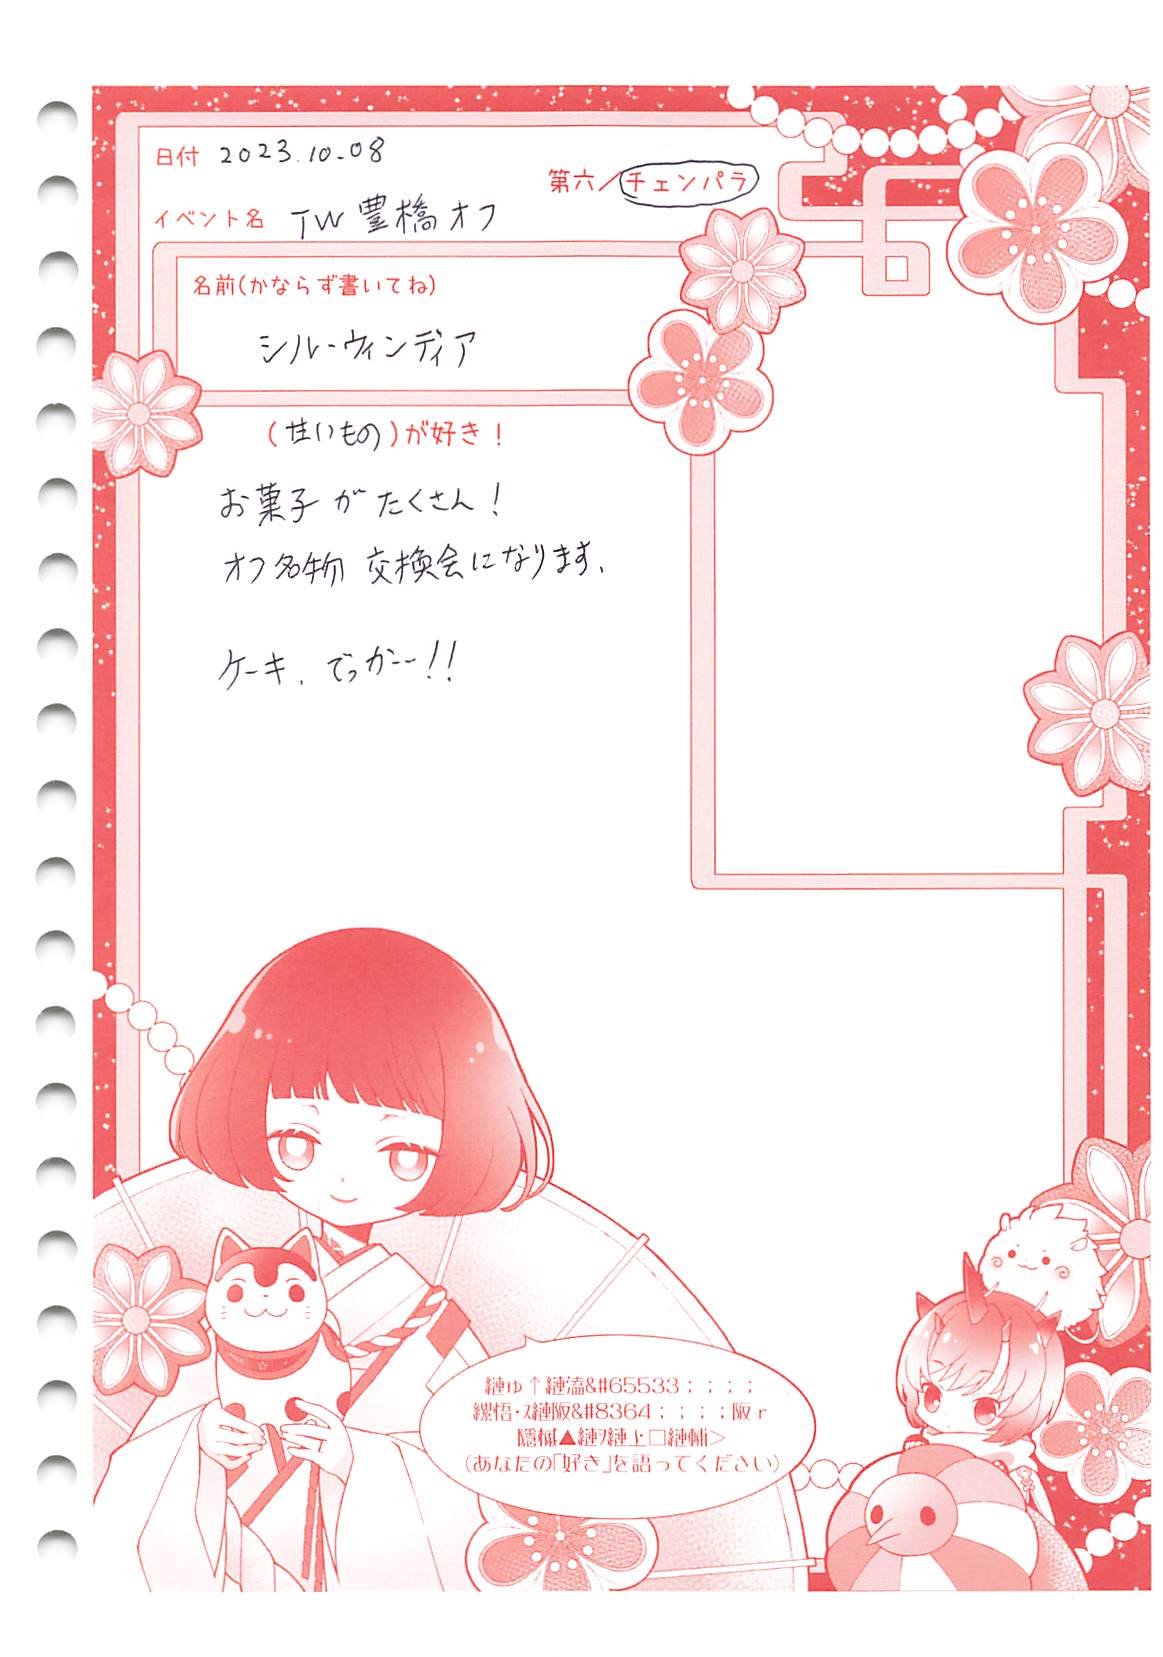 日付 2023.10.08
第六/チェンパラ
イベント名 TW豊橋オフ
名前(かならず書いてね)
シル・ウィンディア
(甘いもの)が好き!
お菓子がたくさん!
オフ名物 交換会になります、
ケーキ、でっかー!!
縺ゅ↑縺溘&#65533;;;;;
縲悟・ス縺阪&#8364;;;;;阪r
隱槭▲縺ヲ縺上□縺輔>
(あなたの「好き」を語ってください)